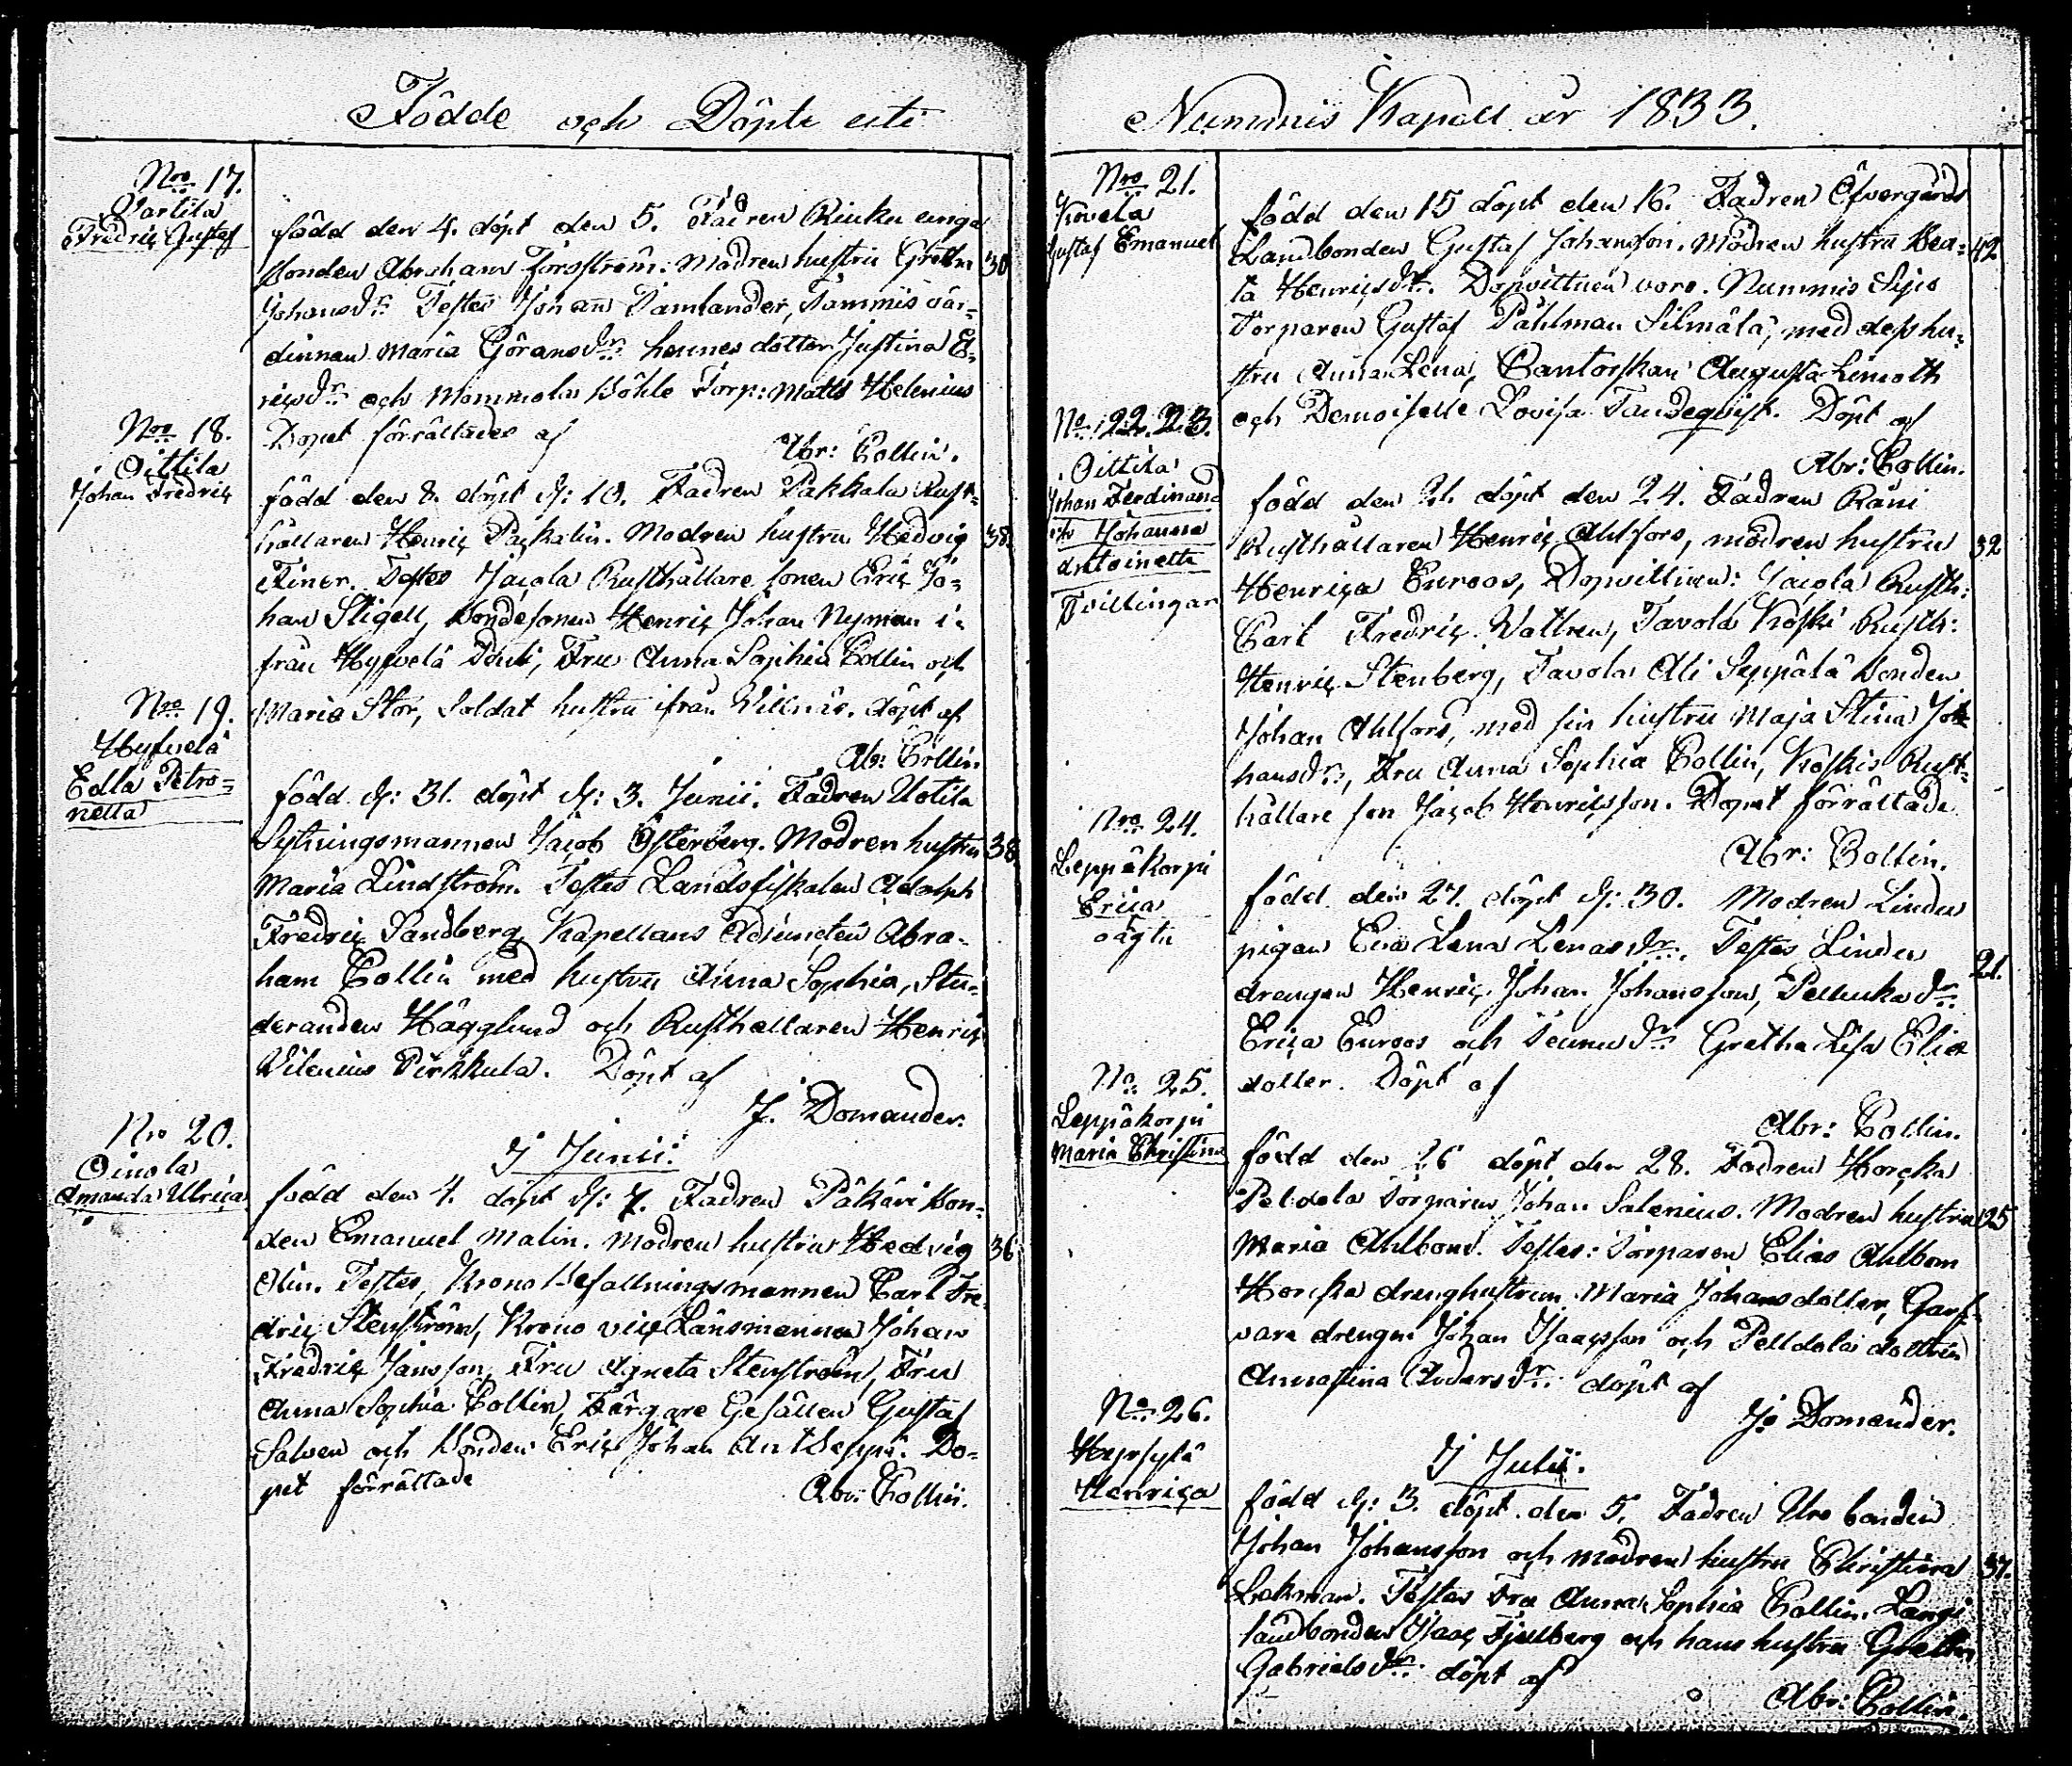 Födde och Döpte uti
Nro 17.
Vartila
Fredric Gustaf
född den 4. döpt den 5. Fadren unga
bonden Abraham Forsström. Modren hustru Gretha 30
Johansdr. Testes Johan Tamlander, Tammis vär-
dinnan Maria Göransdr. hennes dotter Justina E-
ricsdr. och Mommola Böhle Torp: Matts Helenius
Dopet förrättades af
Abr: Collin.
Nro 18.
Oittila
Johan Fredric
född den 8. döpt d: 10. Fadren Pakkala Rust-
hållaren Henric Packalin. Modren hustru Hedvig 38.
Finer. Testes Jacola Rusthållare sonen Eric Jo-
han Stigell, Bondesonen Henric Johan Nyman i-
från Hyfvelä Pouli, Fru Anna Sophia Collin och
Maria Stor, Soldat hustru ifrån Villnäs. döpt af
Abr: Collin.
Nro 19.
Hyfvelä
Edla Petro-
nella
född d: 31. döpt d: 3. Junii. Fadren Uotila
Systningsmannen Jacob Österberg. Modren hustru 38
Maria Lindström. Testes Landsfiskalen Adolph
Fredric Sandberg, Kapellans Adjuncten Abra-
ham Collin med hustru Anna Sophia, Stu-
deranden Hägglund och Rusthållaren Henric
Vilenius Pirkkula. Döpt af
J. Domander.
Nro 20.
Oinola
Amanda Ulrica
I Junii.
född den 4. döpt d: 7. Fadren Päkäri Bon-
den Emanuel Malin. Modren hustru Hedvig 36
Olin. Testes, Krono Befallningsmannen Carl Fre-
dric Stenström, Krono vice Länsmannen Johan
Fredric Jansson, Fru Agneta Stenström, Fru
Anna Sophia Collin, Färgare Gesällen Gustaf
Salven och Bonden Eric Johan Antiseppä. Do-
pet förrättade
Abr: Collin.
Nummis Kapell år 1833.
Nro 21.
Knuela
Gustaf Emanuel
född den 15 döpt den 16. Fadren Öfvergårds
Landbonden Gustaf Johansson. Modren hustru Hea- 42
ta Henricsdr. Dopvittnen voro. Nummis Sijes
Torparen Gustaf Påhlman Silmälä, med dess hu-
stru Anna Lena, Cantorskan Augusta Limoth
och Demoiselle Lovisa Tandeqvist. Döpt af
Abr: Collin.
No. 22. 23.
Oittila
Johan Ferdinand
och Johanna
Antoinette
Tvillingar
född den 21. döpt den 24. Fadren Räni
Rusthållaren Henric Ahlfors, modren hustru 32
Henrica Euroos, Dopvittnen: Jacola Rusth:
Carl Fredric Vallren, Tavola Koski Rusth:
Henric Stenberg, Tavola Ali Seppälä bonden
Johan Ahlfors, med sin hustru Maja Stina Jo-
hansdr, Fru Anna Sophia Collin, Koskis Rust-
hållare son Jacob Henricsson. Dopet förrättade
Abr: Collin.
Nro 24.
Leppäkorpi
Erica
oägta
född den 27. döpt d: 30. Modren Linders
pigan Eva Lena Lenasdr. Testes Linders 21.
drengen Henric Johan Johansson, dr.
Erica Euroos och dr. Gretha Lisa Elias
dotter. Döpt af
Abr: Collin.
No. 25.
Leppäkorpi
Maria Christina
född den 26 döpt den 28. Fadren Horcka
Peldola Torparen Johan Salenius. Modren hustru 25
Maria Ahlbom. Testes: Torparen Elias Ahlbom
Horcka drenghustrun Maria Johansdotter, Garf-
vare drengen Johan Isaacsson och Pelldola dottren
Annastina Andersdr. döpt af
J. Domander.
No. 26.
Hyrsylä
Henrica
I Julii.
född d: 3. döpt den 5. Fadren Uro bonden
Johan Johansson och modren hustru Christina 37.
Lakman. Testes Fru Anna Sophia Collin. Langi
landbonden Isaac Fjellberg och hans hustru Gretha
Gabrielsdr. döpt af
Abr: Collin.